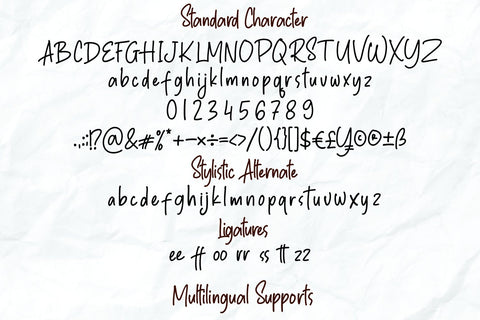 Standard Character
ABCDEFGHIJKLMNOPQRSTUVWXYZ
abcdefghijklmnopqrstuvwxyz
0123456789
.,:;!?@&#%*+-×÷=<>/(){}[]$€£¥©®±ß
Stylistic Alternate
abcdefghijklmnopqrstuvwxyz
Ligatures
ee ff oo rr ss tt zz
Multilingual Supports